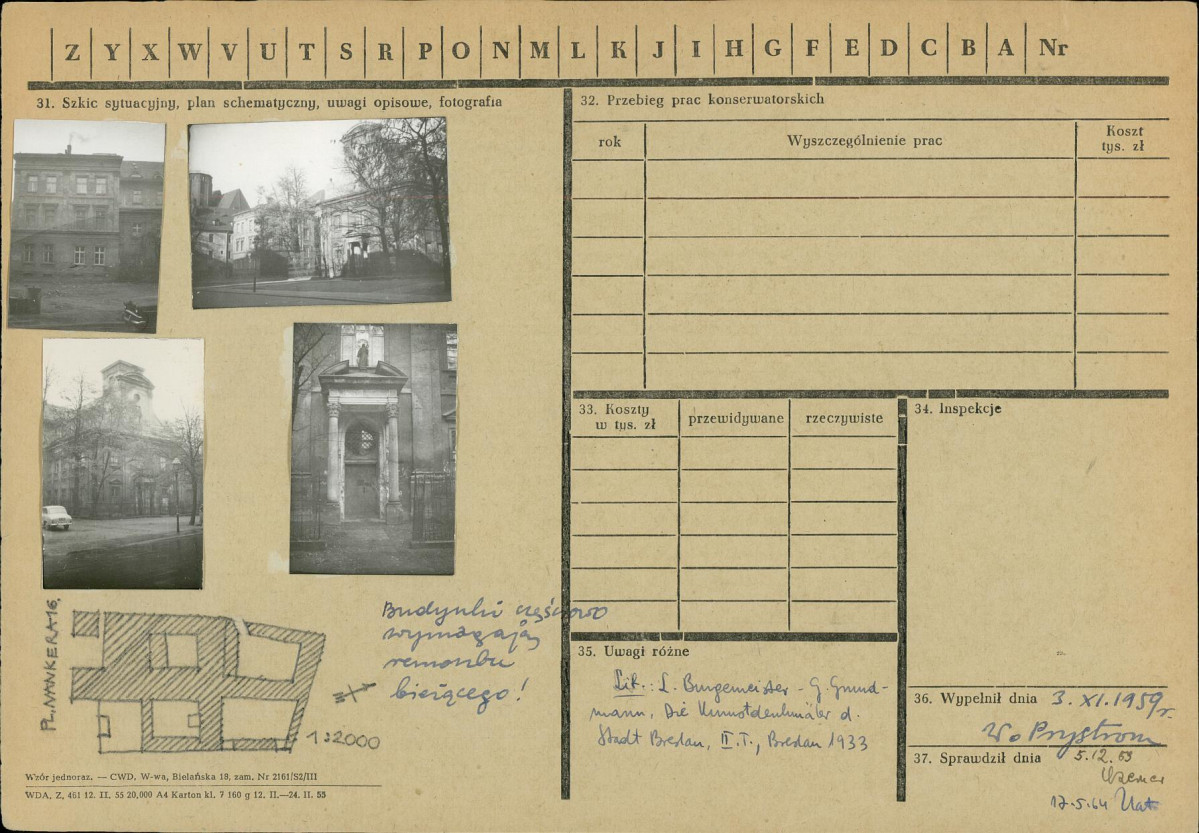 Z Y X W V U T S R P O N M L K J I H G F E D C B A Nr
31. Szkic sytuacyjny, plan schematyczny, uwagi opisowe, fotografia
PL. NANKERA 16,
1:2000
Budynki częściowo
wymagają
remontu
bieżącego!
Wzór jednoraz. — CWD, W-wa, Bielańska 18, zam. Nr 2161/S2/III
WDA. Z. 461 12. II. 55 20,000 A4 Karton kl. 7 160 g 12. II.—24. II. 55
32. Przebieg prac konserwatorskich
rok Wyszczególnienie prac Koszt
tys. zł
33. Koszty
w tys. zł przewidywane rzeczywiste
34. Inspekcje
35. Uwagi różne
Lit.: L. Burgemeister - G. Grund-
mann, Die Kunstdenkmäler d.
Stadt Breslau, II. T., Breslau 1933
36. Wypełnił dnia 3. XI. 1959 r.
37. Sprawdził dnia 5.12.
17.5.64